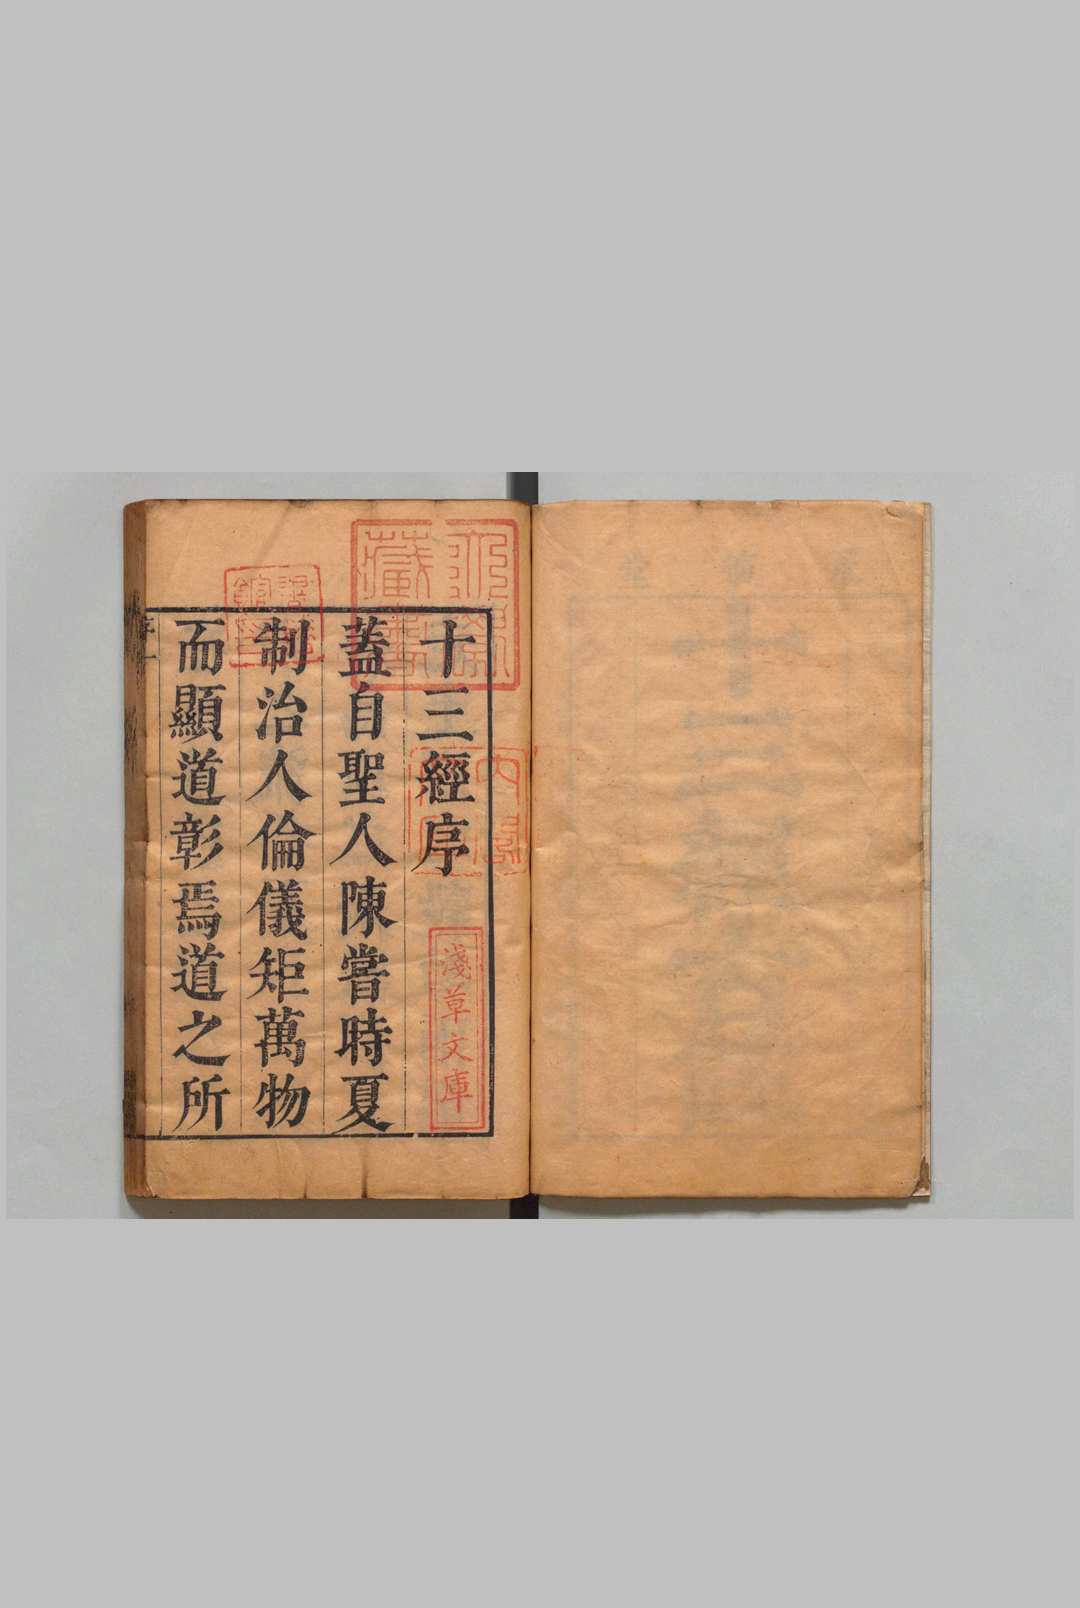 十三經序
蓋自聖人陳嘗時夏
制治人倫儀矩萬物
而顯道彰焉道之所
淺草文庫